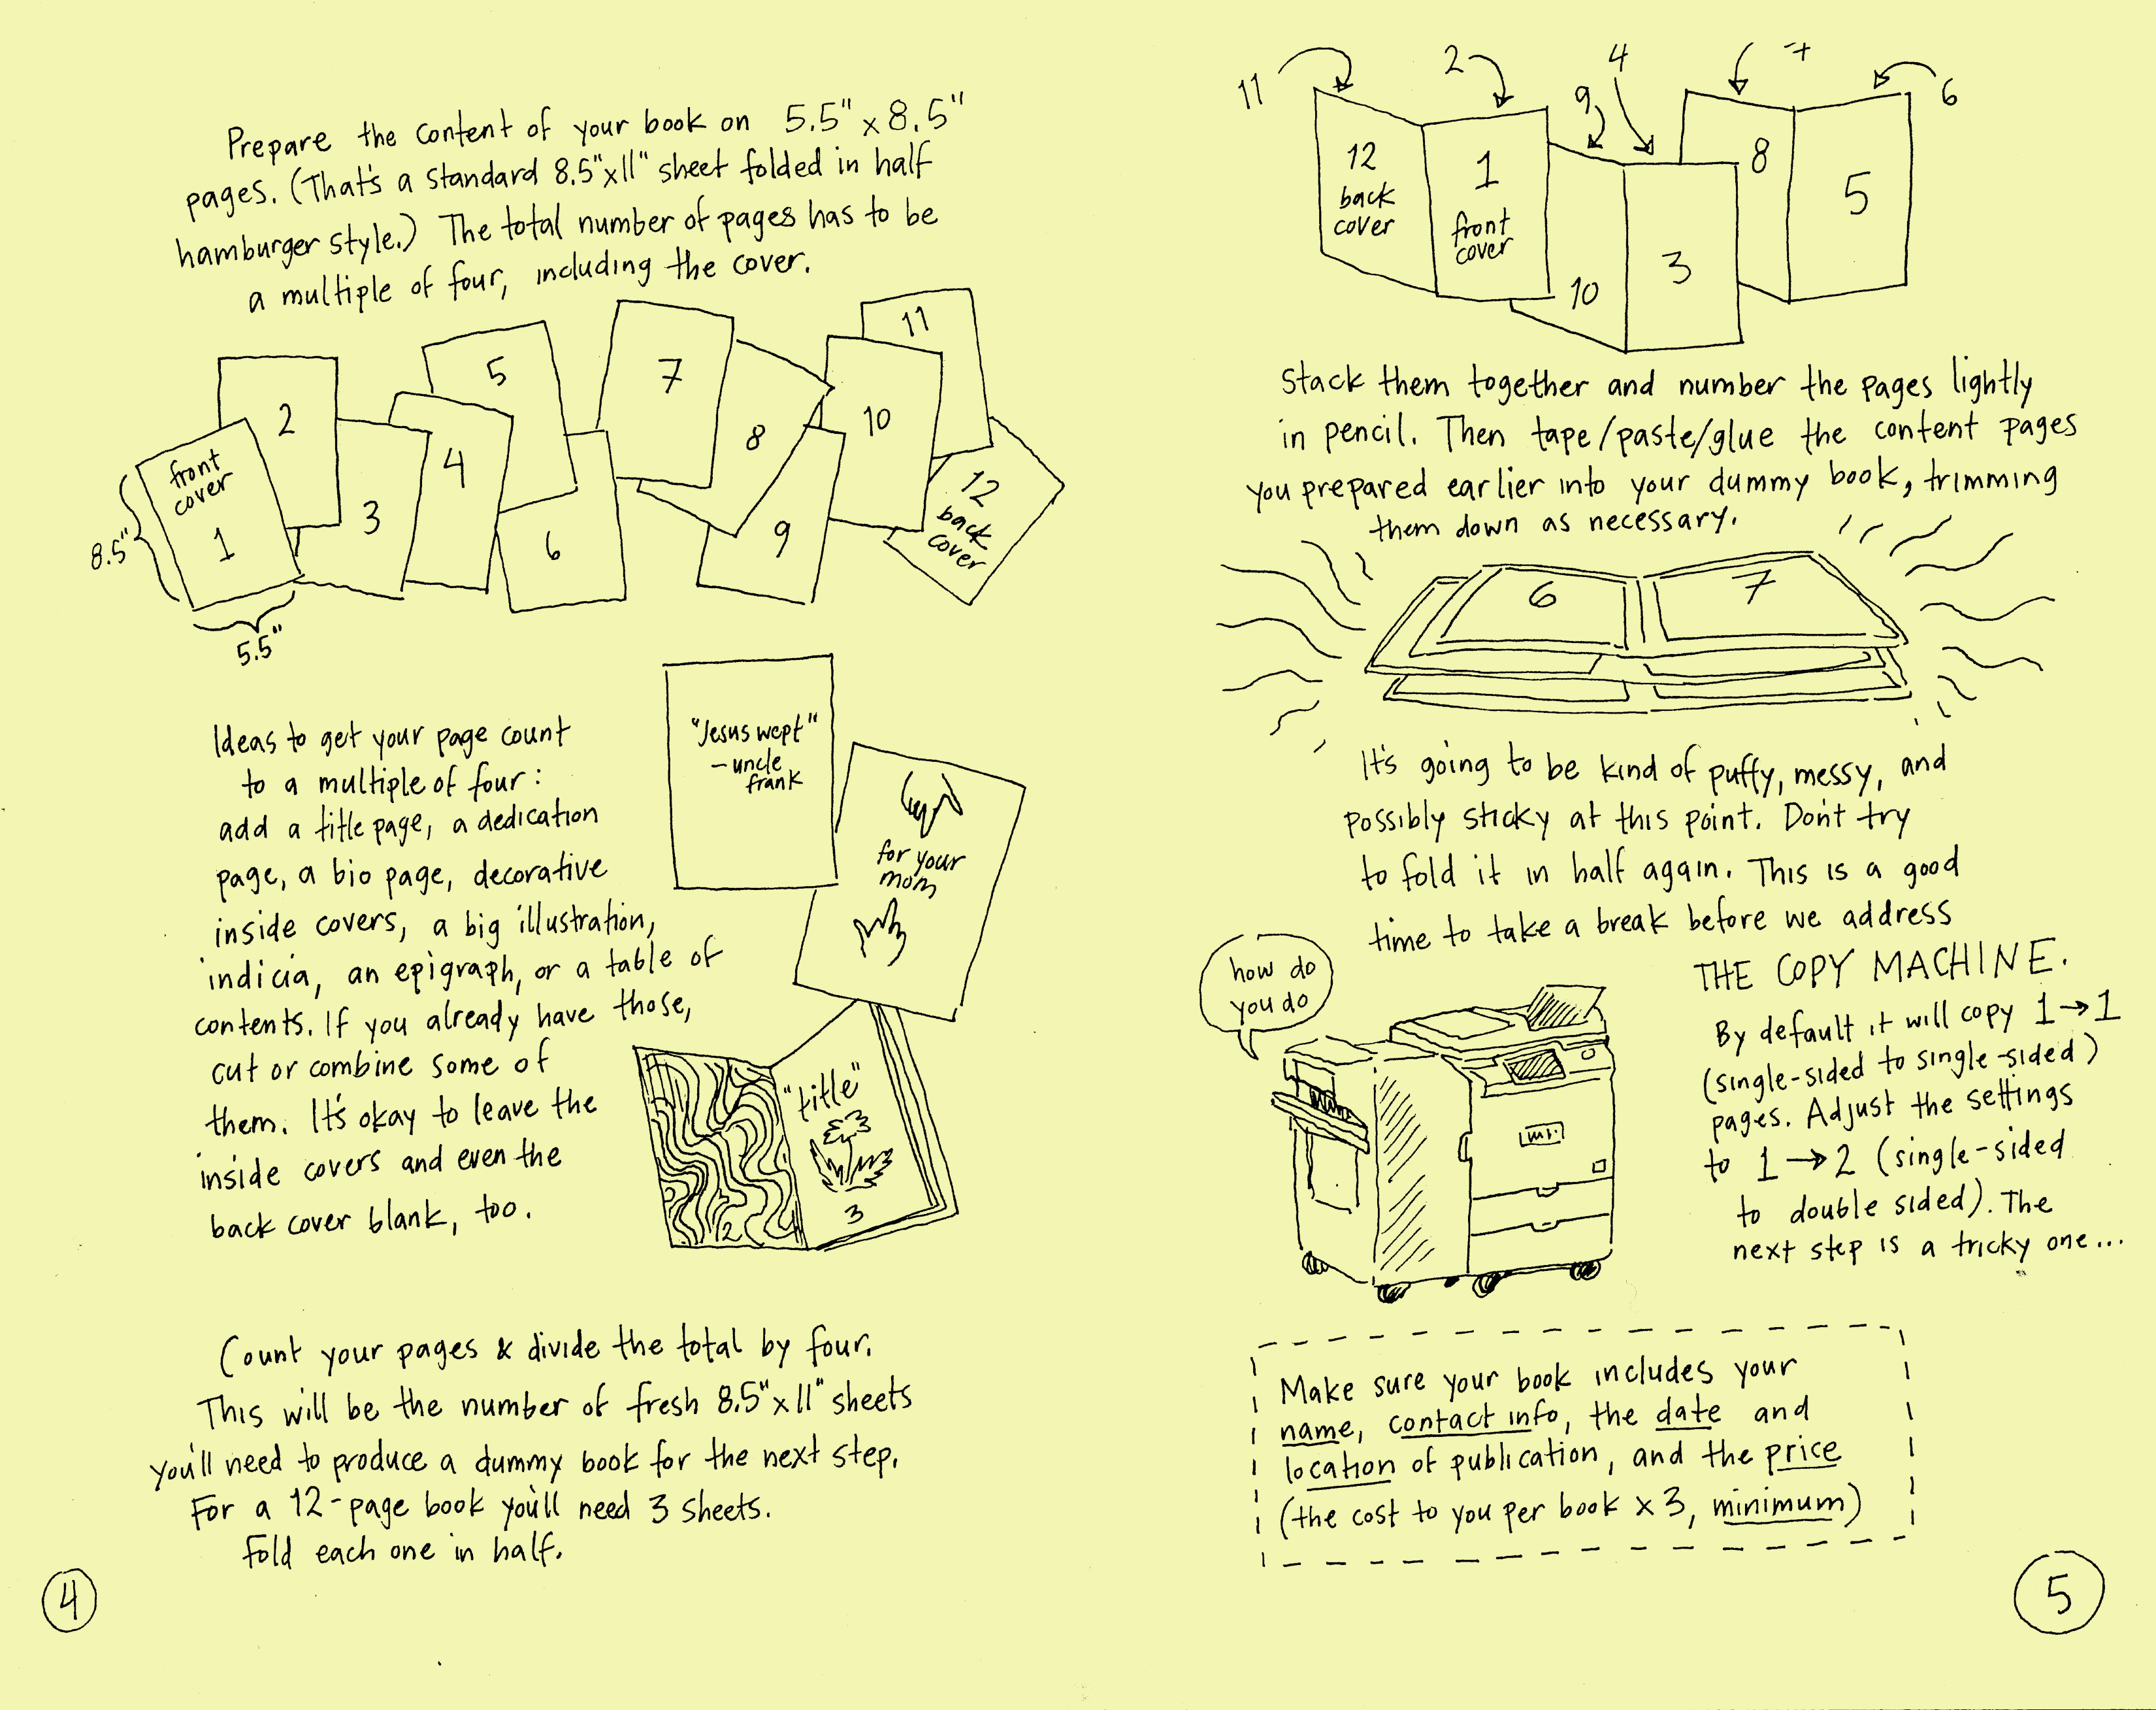 Prepare the content of your book on 5.5" x 8.5"
pages. (That's a standard 8.5"x11" sheet folded in half
hamburger style.) The total number of pages has to be
a multiple of four, including the cover.
front
cover
1
2
3
4
5
6
7
8
9
10
11
12
back
cover
8.5"
5.5"
Ideas to get your page count
to a multiple of four:
add a title page, a dedication
page, a bio page, decorative
inside covers, a big illustration,
indicia, an epigraph, or a table of
contents. If you already have those,
cut or combine some of
them. It's okay to leave the
inside covers and even the
back cover blank, too.
"Jesus wept"
- uncle
frank
for your
mom
"title"
2
3
Count your pages & divide the total by four.
This will be the number of fresh 8.5"x11" sheets
you'll need to produce a dummy book for the next step.
For a 12-page book you'll need 3 sheets.
Fold each one in half.
4
11
2
9
4
7
6
12
back
cover
1
front
cover
10
3
8
5
Stack them together and number the pages lightly
in pencil. Then tape/paste/glue the content pages
you prepared earlier into your dummy book, trimming
them down as necessary.
6
7
It's going to be kind of puffy, messy, and
possibly sticky at this point. Don't try
to fold it in half again. This is a good
time to take a break before we address
THE COPY MACHINE.
how do
you do
mr.
By default it will copy 1→1
(single-sided to single-sided)
pages. Adjust the settings
to 1→2 (single-sided
to double sided). The
next step is a tricky one...
Make sure your book includes your
name, contact info, the date and
location of publication, and the price
(the cost to you per book x 3, minimum)
5